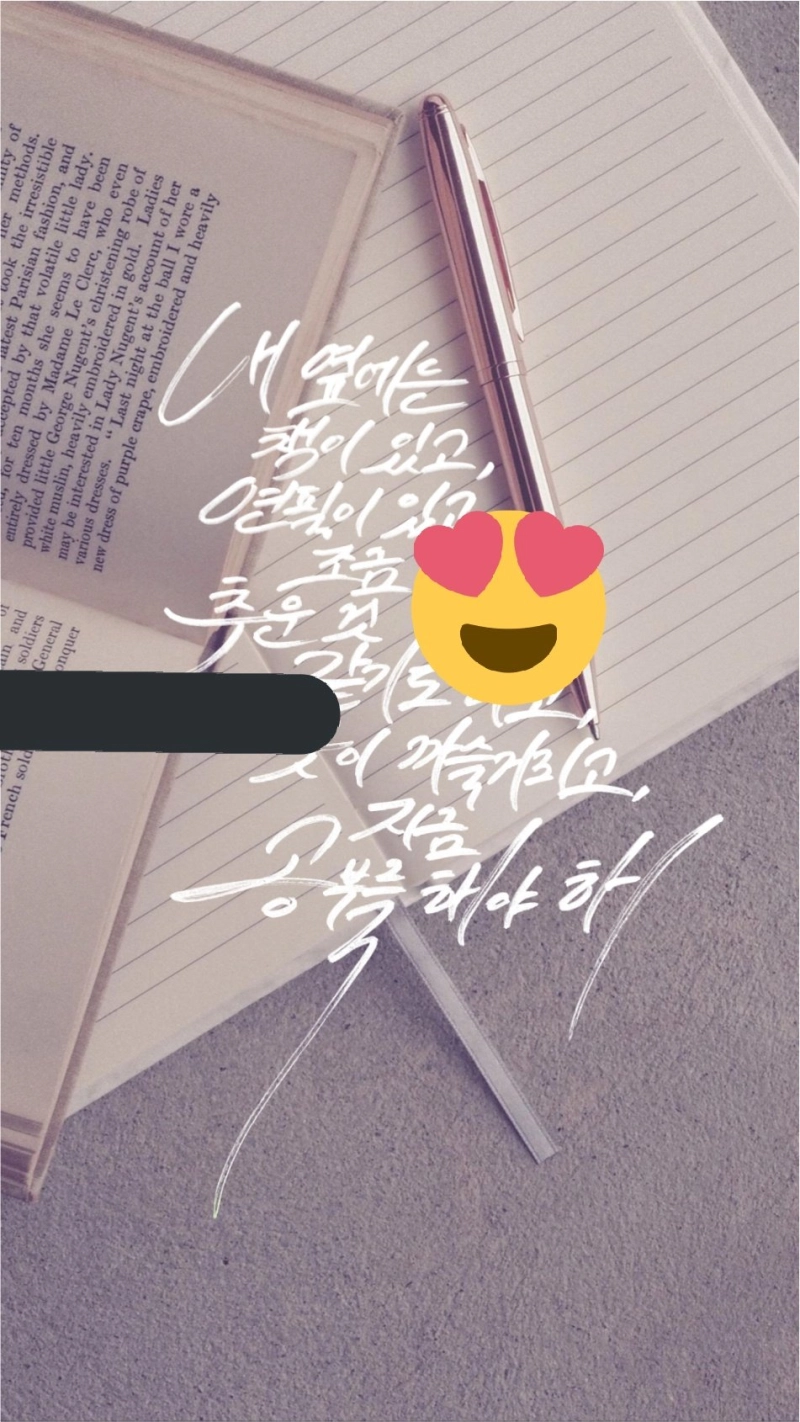 ity of
her methods.
took the irresistible
latest Parisian fashion, and
cepted by that volatile little lady.
for ten months she seems to have been
entirely dressed by Madame Le Clerc, who even
provided little George Nugent's christening robe of
white muslin, heavily embroidered in gold. Ladies
may be interested in Lady Nugent's account of her
various dresses. “Last night at the ball I wore a
new dress of purple crape, embroidered and heavily
of
and
soldiers
General
onquer
French
내 옆에는
책이 있고,
연필이 있고
조금
추운 것
같기도
이 꺼슬거리고,
지금
공복 하야 하